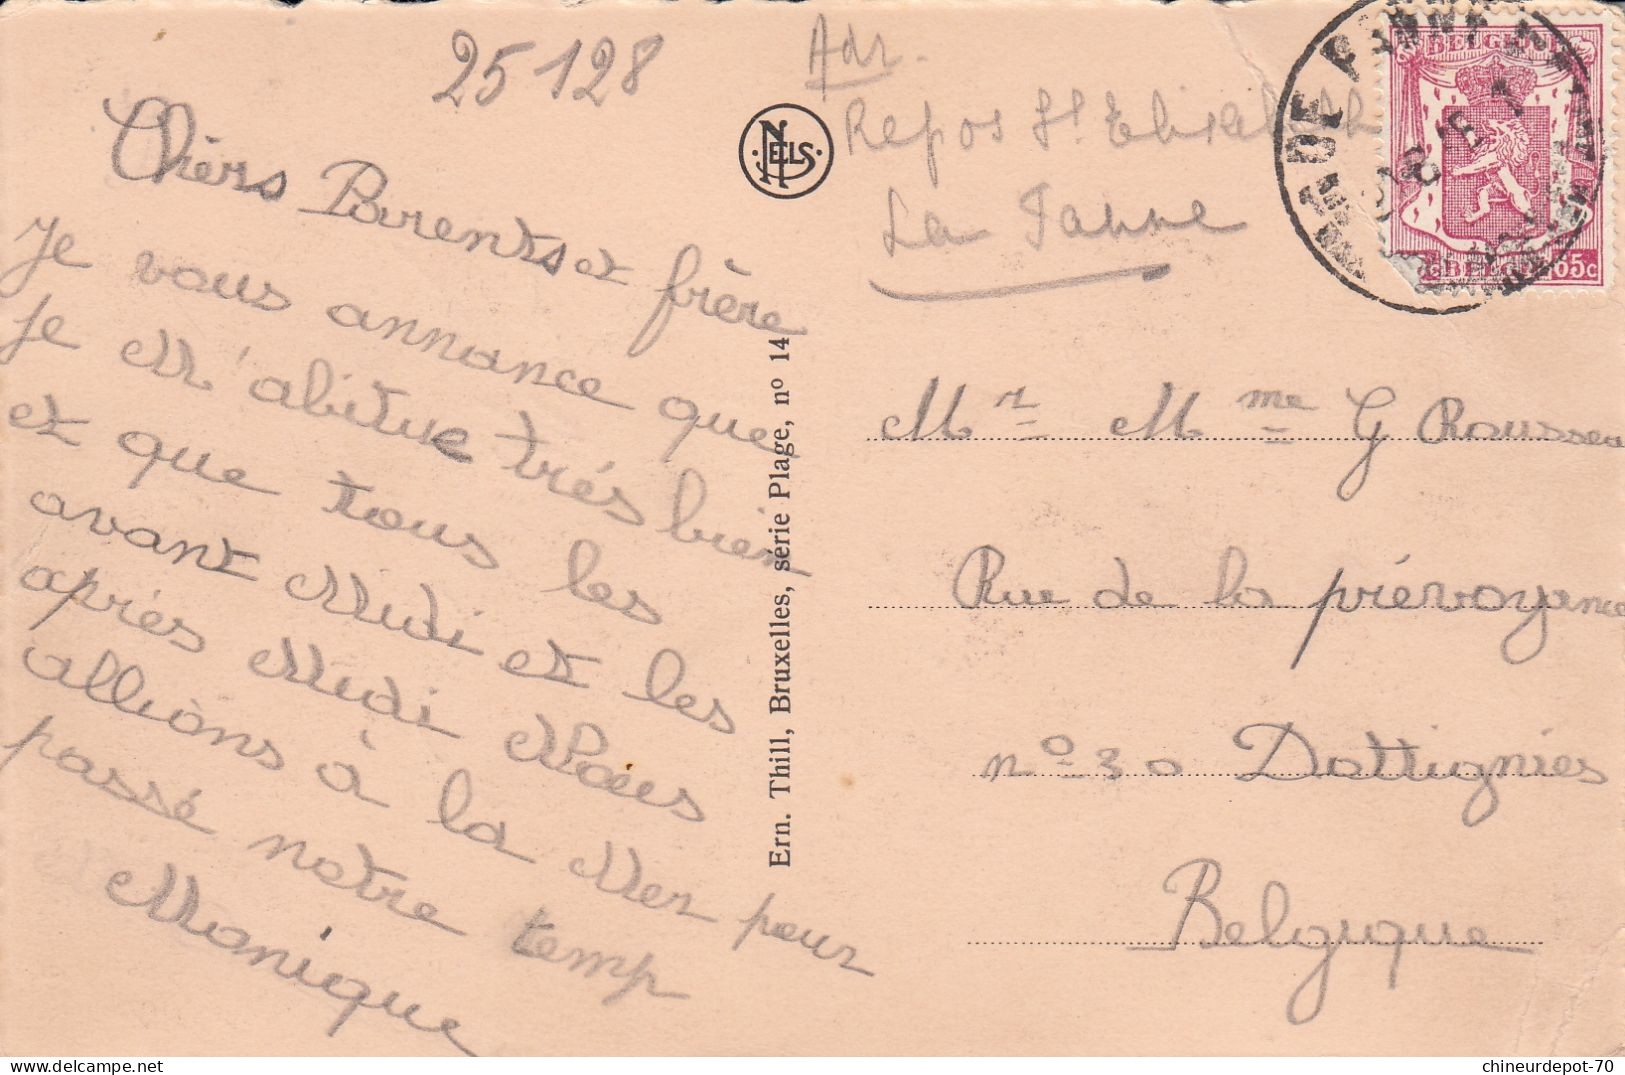 25128
Chèrs Parents et frère
Je vous annonce que
je M'abitue très bien
et que tous les
avant Midi et les
après Midi Nous
allions à la Mer pour
passé notre temp
Monique
NELS
Ern. Thill, Bruxelles, série Plage, nº 14
Adr.
Repos St Elisabeth
La Panne
DE PANNE
BELGIQUE
BELGIE 65c
Mr Mme G Rousseau
Rue de la prévoyance
nº 30 Dottignies
Belguique
chineurdepot-70